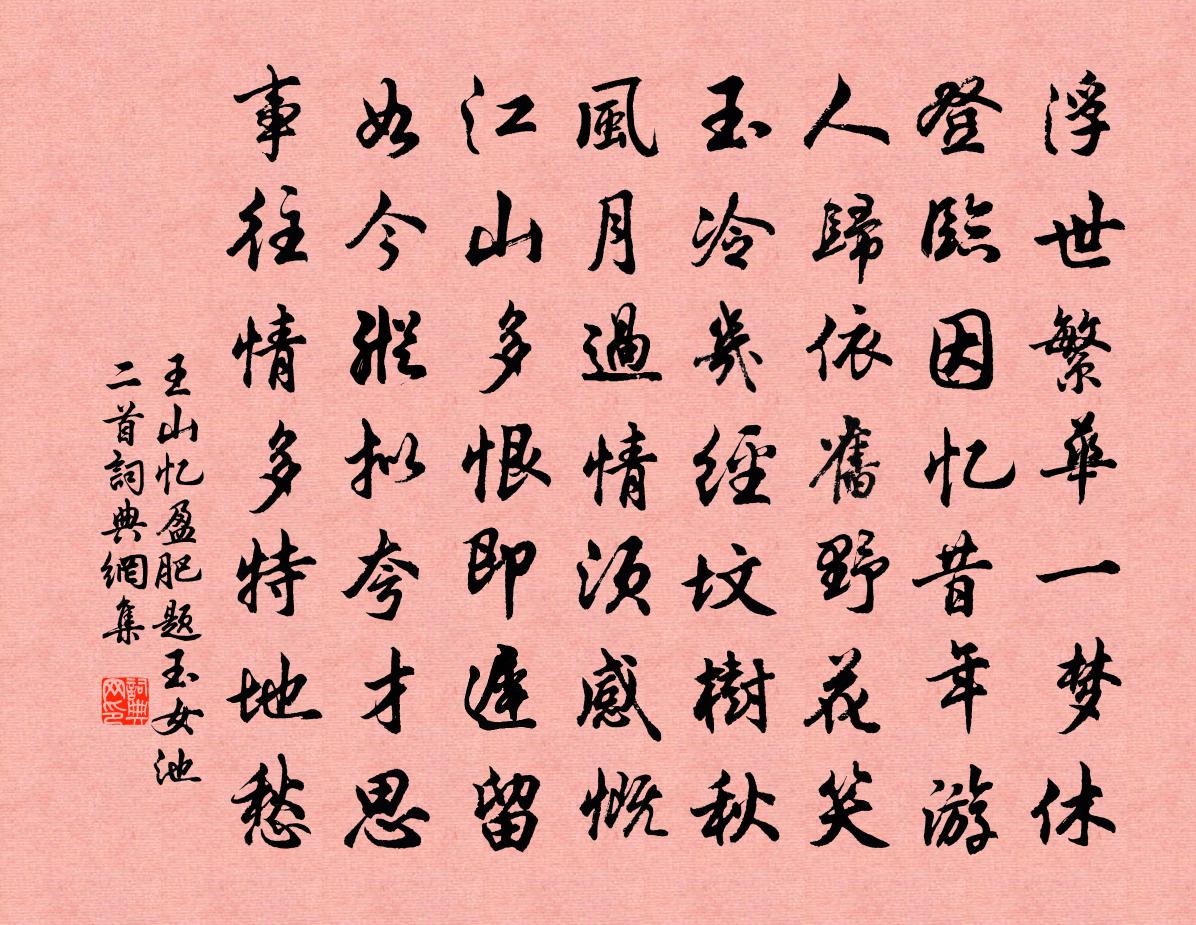 浮世繁華一梦休
登臨因忆昔年游
人歸依舊野花笑
玉冷幾經坟樹秋
風月過情須感慨
江山多恨即遲留
如今縱拟夸才思
事往情多特地愁
王山忆盈肥题玉女池
二首詞典網集
詞典網印